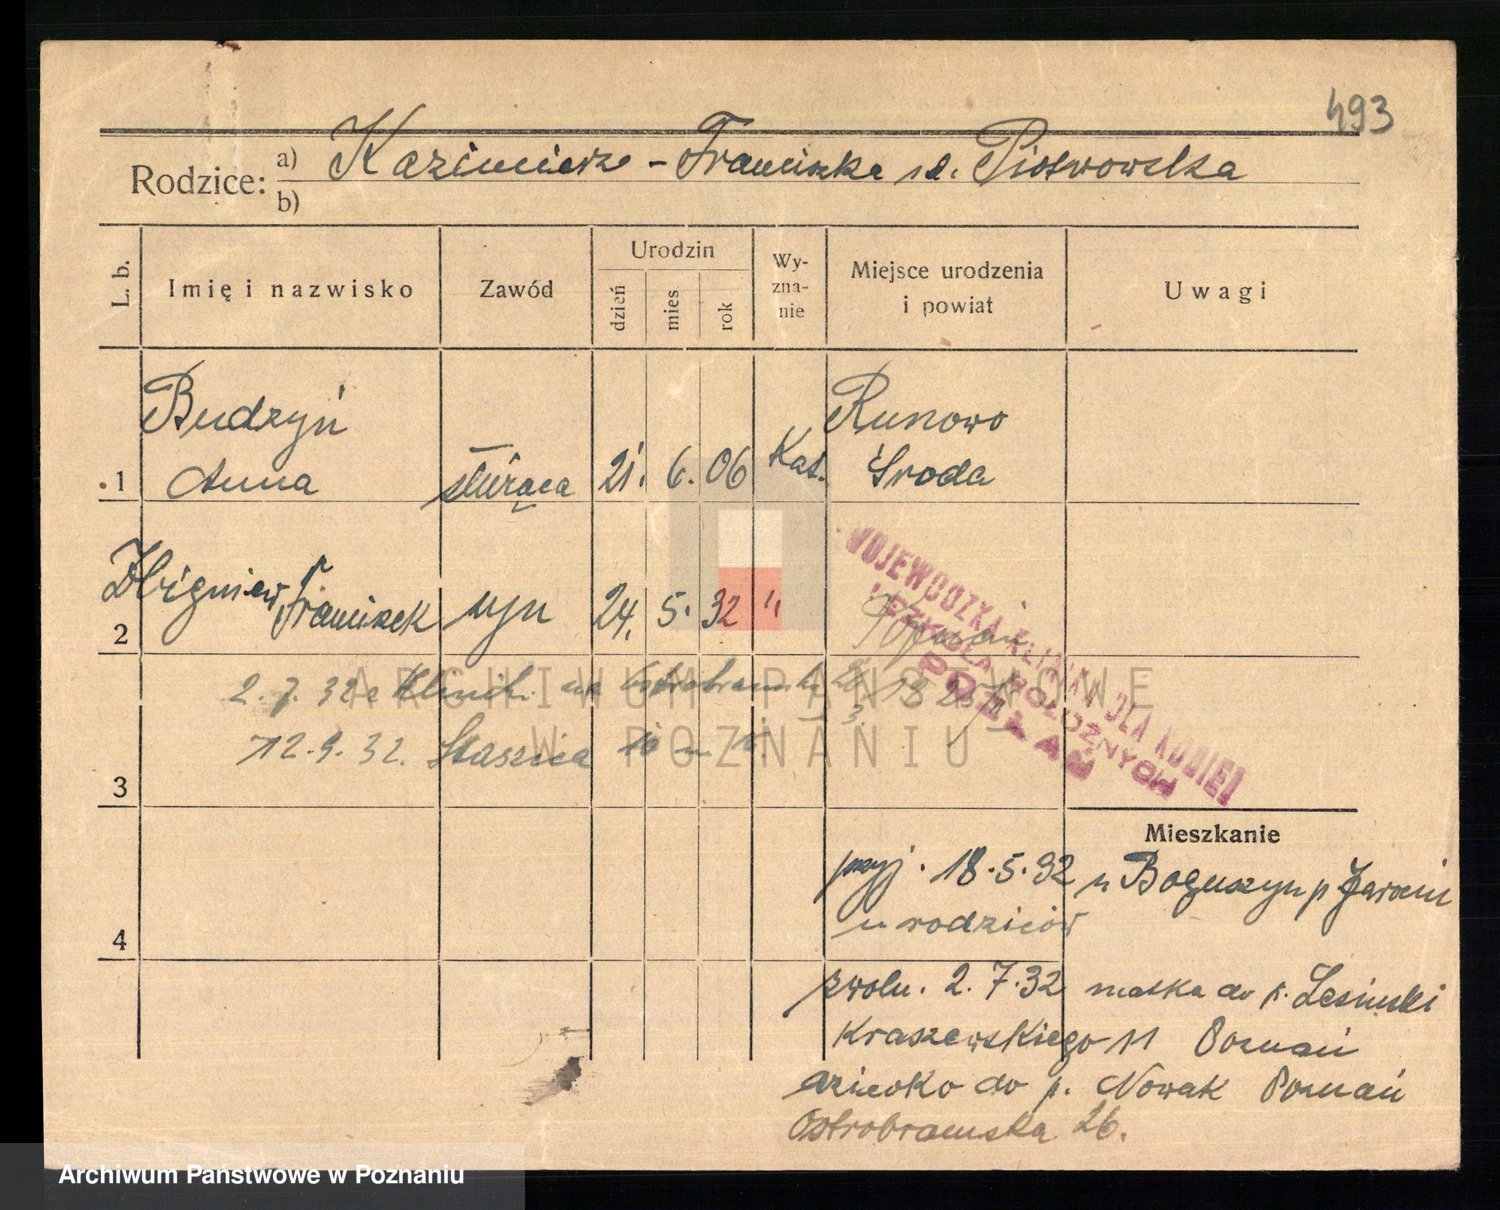 493
Rodzice: a) Kazimierz - Franciszka z d. Piotrowska
b)
L. b.
Imię i nazwisko
Zawód
Urodzin
dzień
mies
rok
Wy-
zna-
nie
Miejsce urodzenia
i powiat
Uwagi
Budzyń Runowo
1 Anna służąca 21. 6. 06 Kat. Środa
2 Zbigniew Franciszek syn 24. 5. 32 " Poznań
WOJEWÓDZKA KLINIKA DLA KOBIET
I SZKOŁA POŁOŻNYCH
POZNAŃ
2.7.32 z Kliniki na Ostrobramska 26
12.9.32. Staszica 16 m
3
Mieszkanie
przyj. 18.5.32 z Boguszyn p Jarocin
4 u rodziców
zwoln. 2.7.32 matka do p. Lesinski
Kraszewskiego 11 Poznań
dziecko do p. Nowak Poznań
Ostrobramska 26.
ARCHIWUM PAŃSTWOWE
W POZNANIU
Archiwum Państwowe w Poznaniu